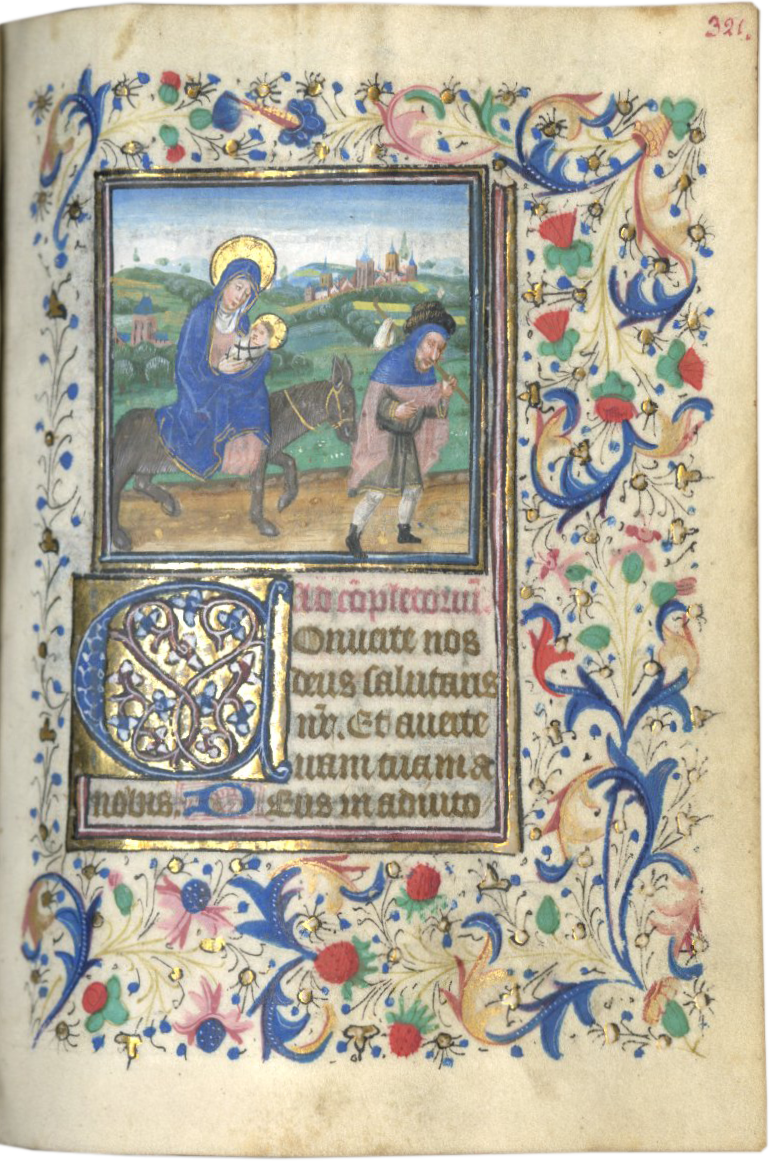 321.
Ad cōpletoriū.
Conuerte nos
deus salutaris
nr̄. Et auerte
iram tuam a
nobis. Deus in adiuto